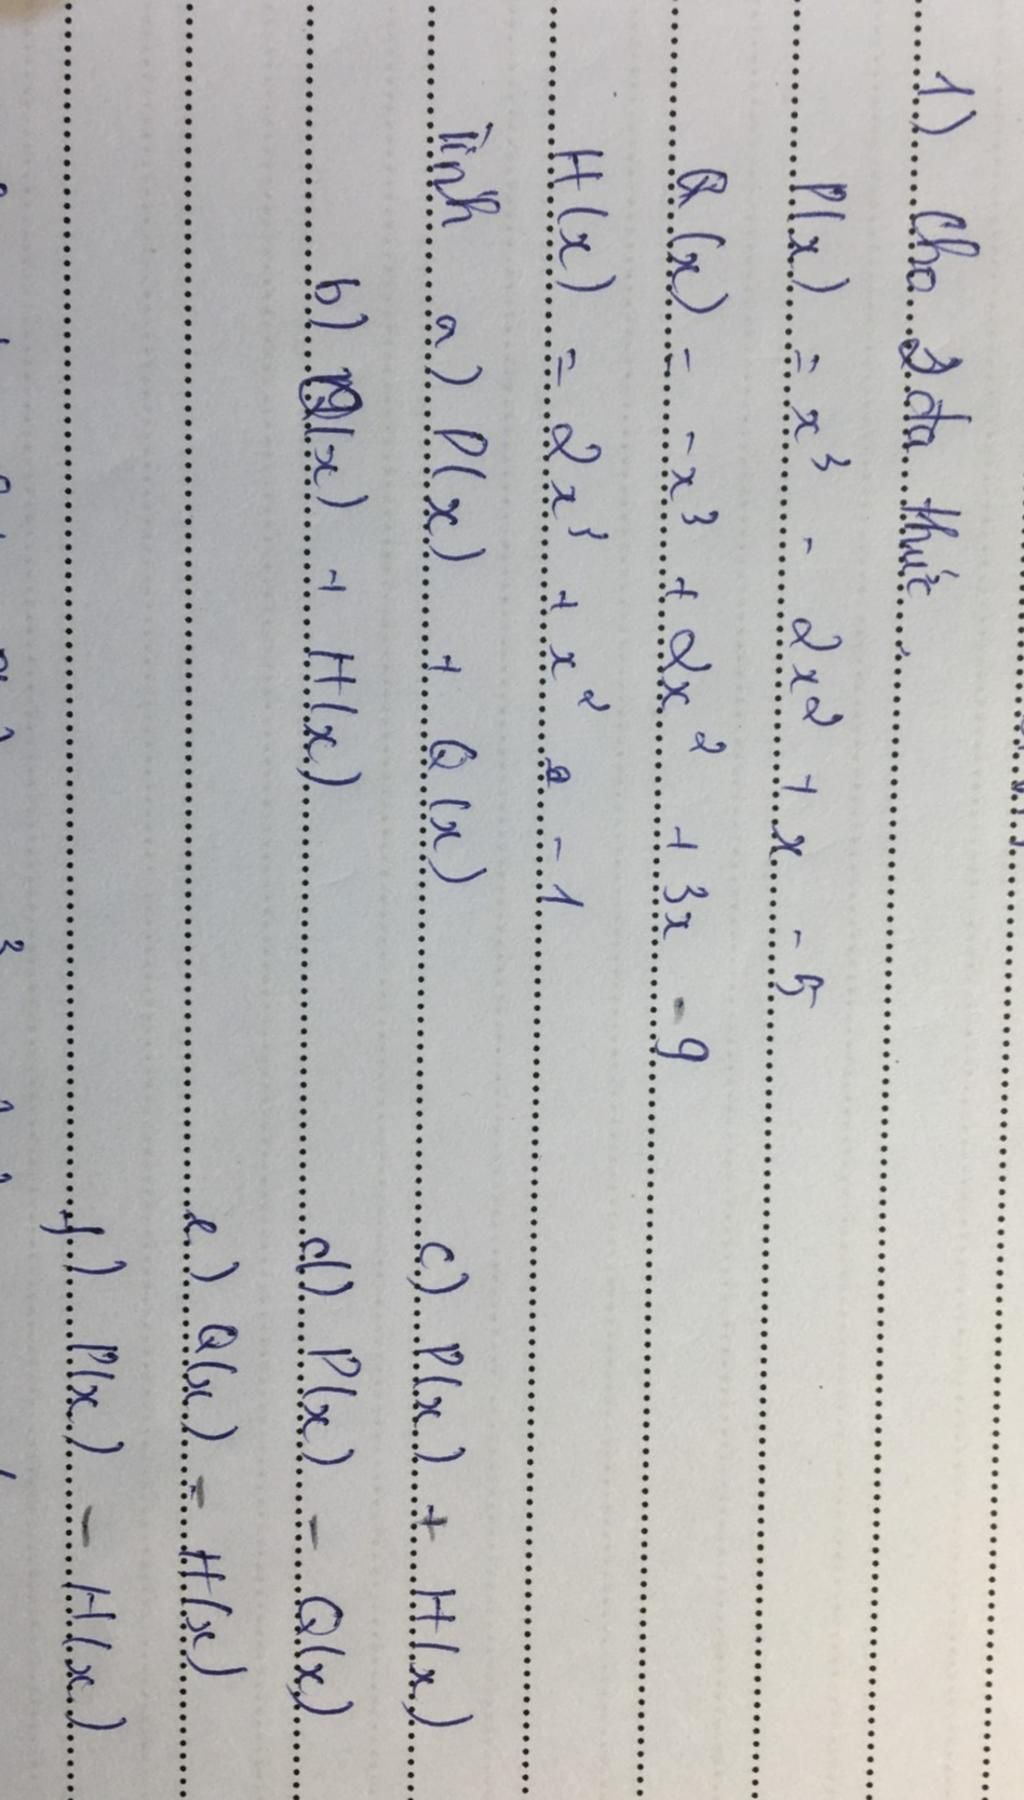 1) Cho 2 đa thức.
P(x) = x³ - 2x² + x - 5
Q(x) = -x³ + 2x² + 3x - 9
H(x) = 2x³ + x² - 1
Tính a) P(x) + Q(x) c) P(x) + H(x)
b) Q(x) + H(x) d) P(x) - Q(x)
e) Q(x) - H(x)
f) P(x) - H(x)